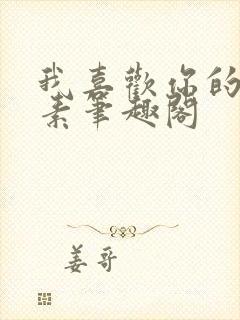 我喜歡你的
素筆趣閣
姜哥